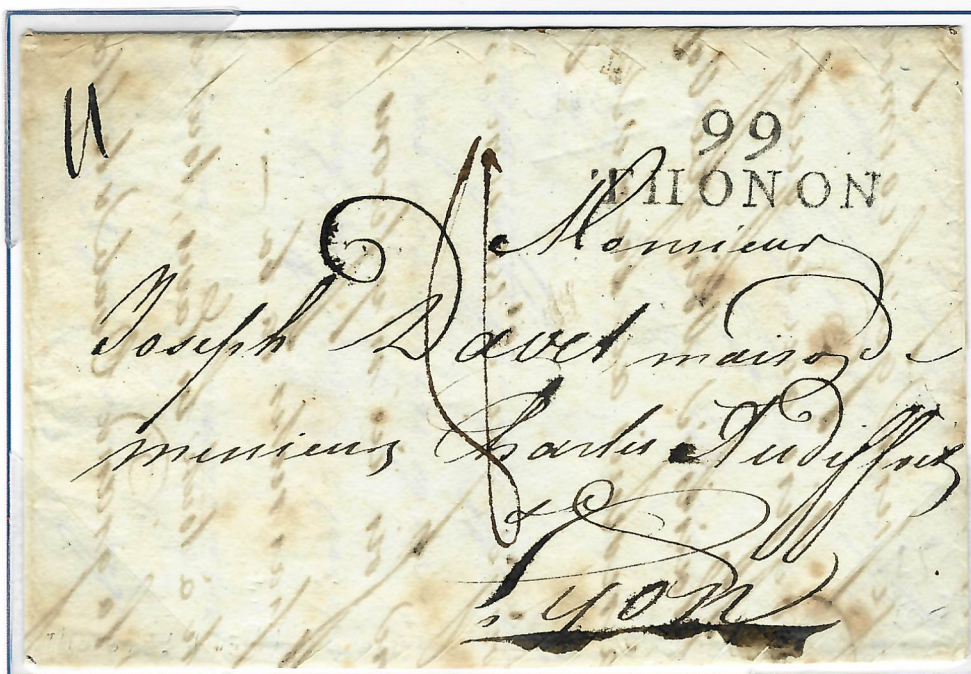 99
THONON
Monsieur
Joseph Davet maison de
messieurs Charles Audiffret
a Lyon